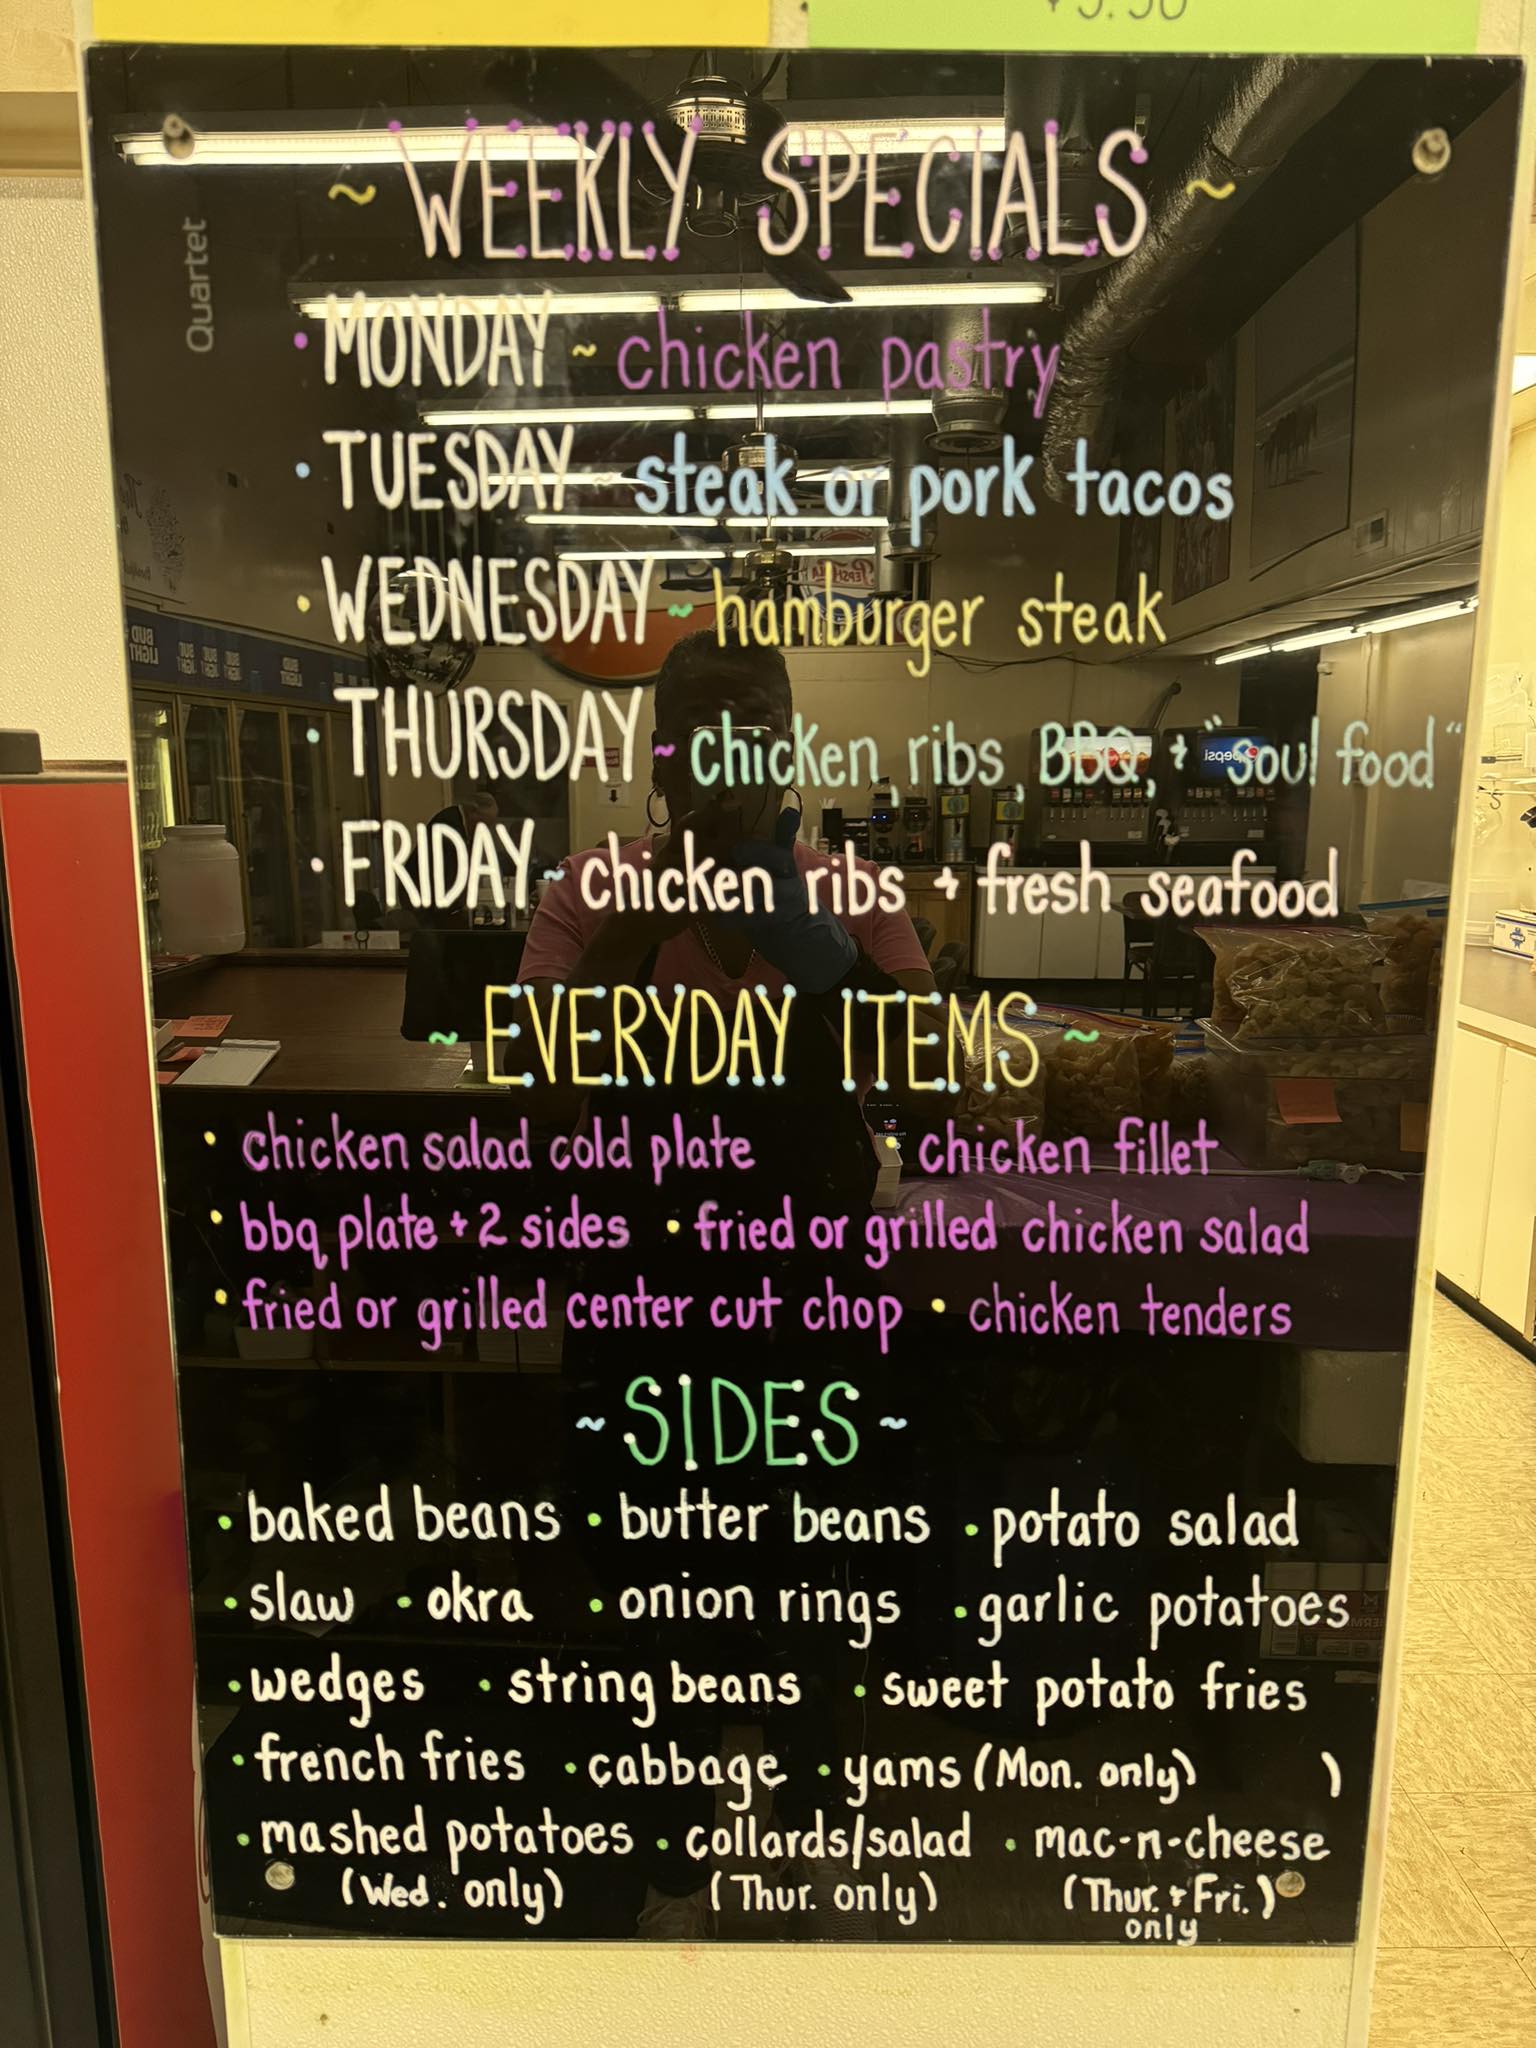 $5.50
Quartet
~ WEEKLY SPECIALS ~
• MONDAY ~ chicken pastry
• TUESDAY ~ steak or pork tacos
• WEDNESDAY ~ hamburger steak
• THURSDAY ~ chicken, ribs, BBQ, + "soul food"
• FRIDAY ~ chicken ribs + fresh seafood
~ EVERYDAY ITEMS ~
• chicken salad cold plate • chicken fillet
• bbq plate + 2 sides • fried or grilled chicken salad
• fried or grilled center cut chop • chicken tenders
~ SIDES ~
• baked beans • butter beans • potato salad
• slaw • okra • onion rings • garlic potatoes
• wedges • string beans • sweet potato fries
• french fries • cabbage • yams (Mon. only) )
• mashed potatoes • collards/salad • mac-n-cheese
(Wed. only) (Thur. only) (Thur. + Fri.)
only
BUD LIGHT
BUD LIGHT
PEPSI-COLA
pepsi